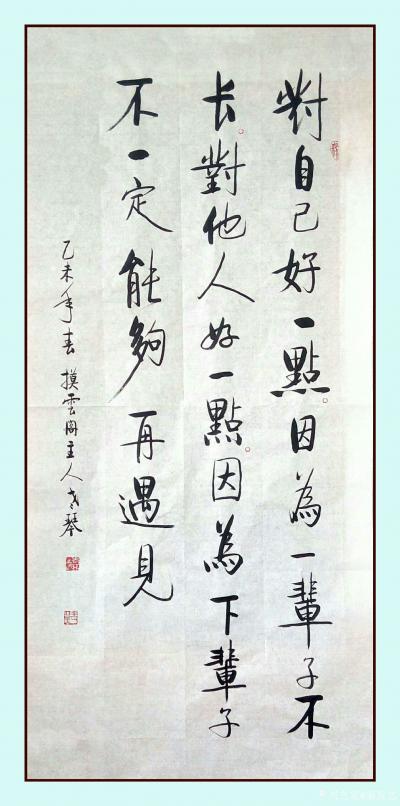 對自己好一點因為一輩子不
长對他人好一點因為下輩子
不一定能夠再遇見
乙未年春摸雲阁主人老琴